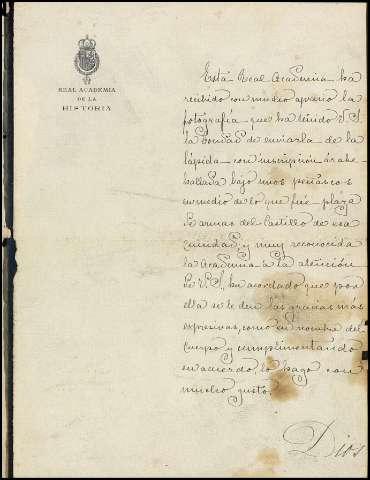 REAL ACADEMIA
DE LA
HISTORIA
Esta Real Academia ha
recibido con mucho aprecio la
fotografía que ha tenido V.S.
la bondad de enviarla de la
lápida con inscripción árabe
hallada bajo unos peñascos
en medio de lo que fue plaza
de armas del Castillo de esa
ciudad, y muy reconocida
la Academia a la atención
de V.S., ha acordado que por
ella se le den las gracias más
expresivas, como en nombre del
Cuerpo y cumplimentando
su acuerdo, lo hago con
mucho gusto.
Dios